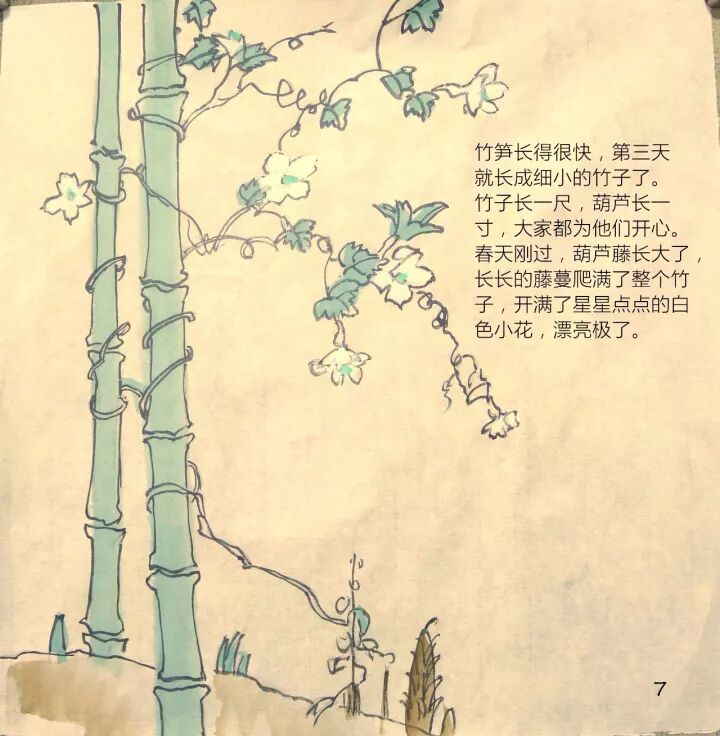 竹笋长得很快，第三天
就长成细小的竹子了。
竹子长一尺，葫芦长一
寸，大家都为他们开心。
春天刚过，葫芦藤长大了，
长长的藤蔓爬满了整个竹
子，开满了星星点点的白
色小花，漂亮极了。
7